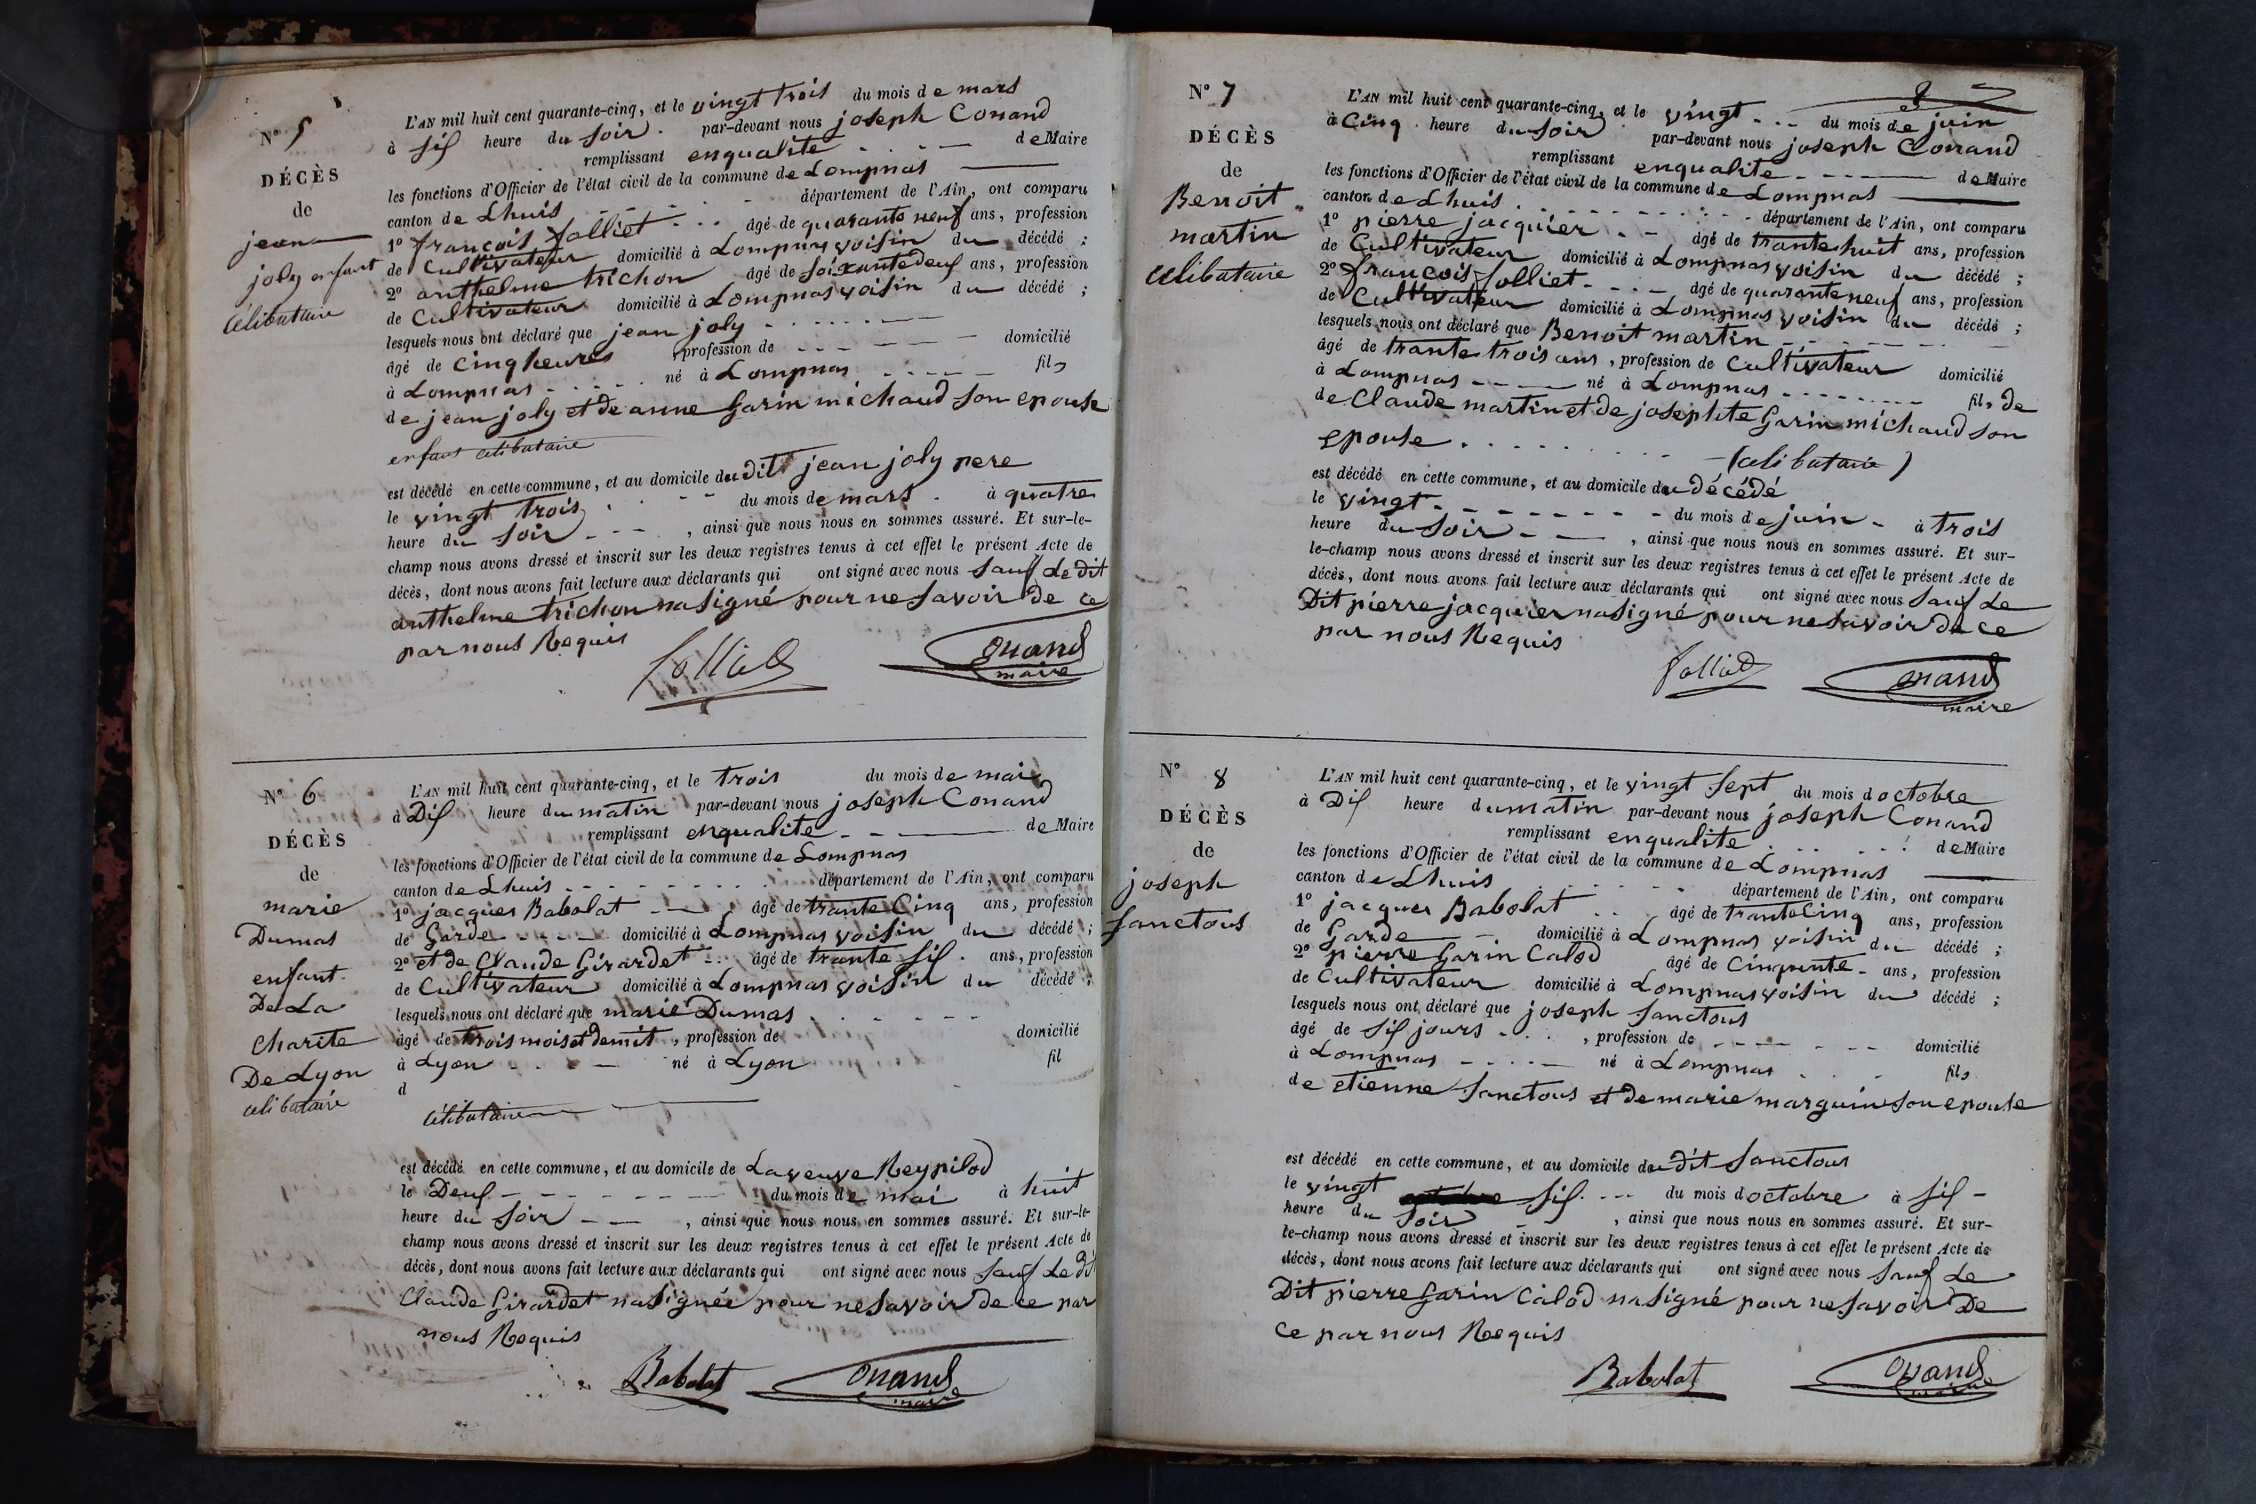 N° 5
DÉCÈS
de
jean
joly enfant
célibataire
L'AN mil huit cent quarante-cinq, et le vingt trois du mois de mars
à sif heure du soir par-devant nous joseph Conand
remplissant enqualite de Maire
les fonctions d'Officier de l'état civil de la commune de Lompnas
canton de Lhuis département de l'Ain, ont comparu
1° françois folliet âgé de quarante neuf ans, profession
de Cultivateur domicilié à Lompnas voisin du décédé ;
2° anthelme trichon âgé de soixante deuf ans, profession
de Cultivateur domicilié à Lompnas voisin du décédé ;
lesquels nous ont déclaré que jean joly
âgé de cinq heures , profession de domicilié
à Lompnas né à Lompnas fils
de jean joly et de anne Garin michaud son epouse
enfant célibataire
est décédé en cette commune, et au domicile du dit jean joly pere
le vingt trois du mois de mars à quatre
heure du soir , ainsi que nous nous en sommes assuré. Et sur-le-
champ nous avons dressé et inscrit sur les deux registres tenus à cet effet le présent Acte de
décès, dont nous avons fait lecture aux déclarants qui ont signé avec nous sauf Le dit
anthelme trichon na signé pour ne savoir de ce
par nous Requis
folliet Conand
maire
N° 6
DÉCÈS
de
marie
Dumas
enfant
De La
Charite
De Lyon
célibataire
L'AN mil huit cent quarante-cinq, et le trois du mois de mai
à Dif heure du matin par-devant nous joseph Conand
remplissant enqualite de Maire
les fonctions d'Officier de l'état civil de la commune de Lompnas
canton de Lhuis département de l'Ain, ont comparu
1° jacques Babolat âgé de trante Cinq ans, profession
de Garde domicilié à Lompnas voisin du décédé ;
2° et de Claude Girardet âgé de trante sif ans, profession
de Cultivateur domicilié à Lompnas voisin du décédé ;
lesquels nous ont déclaré que marie Dumas
âgé de trois mois et demit , profession de domicilié
à Lyon né à Lyon fil
d
célibataire
est décédé en cette commune, et au domicile de La veuve Reypilod
le Deuf du mois de mai à huit
heure du soir , ainsi que nous nous en sommes assuré. Et sur-le-
champ nous avons dressé et inscrit sur les deux registres tenus à cet effet le présent Acte de
décès, dont nous avons fait lecture aux déclarants qui ont signé avec nous sauf Le dit
Claude Girardet na signée pour ne savoir de ce par
nous Requis
Babolat Conand
maire
N° 7
DÉCÈS
de
Benoit
martin
célibataire
L'AN mil huit cent quarante-cinq, et le vingt du mois de juin
à Cinq heure du soir par-devant nous joseph Conand
remplissant enqualite de Maire
les fonctions d'Officier de l'état civil de la commune de Lompnas
canton de Lhuis département de l'Ain, ont comparu
1° pierre jacquier âgé de trante huit ans, profession
de Cultivateur domicilié à Lompnas voisin du décédé ;
2° françois folliet âgé de quarante neuf ans, profession
de Cultivateur domicilié à Lompnas voisin du décédé ;
lesquels nous ont déclaré que Benoit martin
âgé de trante trois ans , profession de Cultivateur domicilié
à Lompnas né à Lompnas fils de
de Claude martin et de josephte Garin michaud son
epouse (célibataire)
est décédé en cette commune, et au domicile du décédé
le vingt du mois de juin à trois
heure du soir , ainsi que nous nous en sommes assuré. Et sur-
le-champ nous avons dressé et inscrit sur les deux registres tenus à cet effet le présent Acte de
décès, dont nous avons fait lecture aux déclarants qui ont signé avec nous sauf Le
Dit pierre jacquier na signé pour ne savoir de ce
par nous Requis
folliet Conand
maire
N° 8
DÉCÈS
de
joseph
Sanctous
L'AN mil huit cent quarante-cinq, et le vingt sept du mois d octobre
à Dif heure du matin par-devant nous joseph Conand
remplissant enqualite de Maire
les fonctions d'Officier de l'état civil de la commune de Lompnas
canton de Lhuis département de l'Ain, ont comparu
1° jacques Babolat âgé de trante Cinq ans, profession
de Garde domicilié à Lompnas voisin du décédé ;
2° pierre Garin Calod âgé de Cinquente ans, profession
de Cultivateur domicilié à Lompnas voisin du décédé ;
lesquels nous ont déclaré que joseph Sanctous
âgé de sif jours , profession de domicilié
à Lompnas né à Lompnas fils
de etienne Sanctous et de marie marguin son epouse
est décédé en cette commune, et au domicile du dit Sanctous
le vingt sif du mois d octobre à sif
heure du soir , ainsi que nous nous en sommes assuré. Et sur-
le-champ nous avons dressé et inscrit sur les deux registres tenus à cet effet le présent Acte de
décès, dont nous avons fait lecture aux déclarants qui ont signé avec nous sauf Le
Dit pierre Garin Calod na signé pour ne savoir De
ce par nous Requis
Babolat Conand
maire